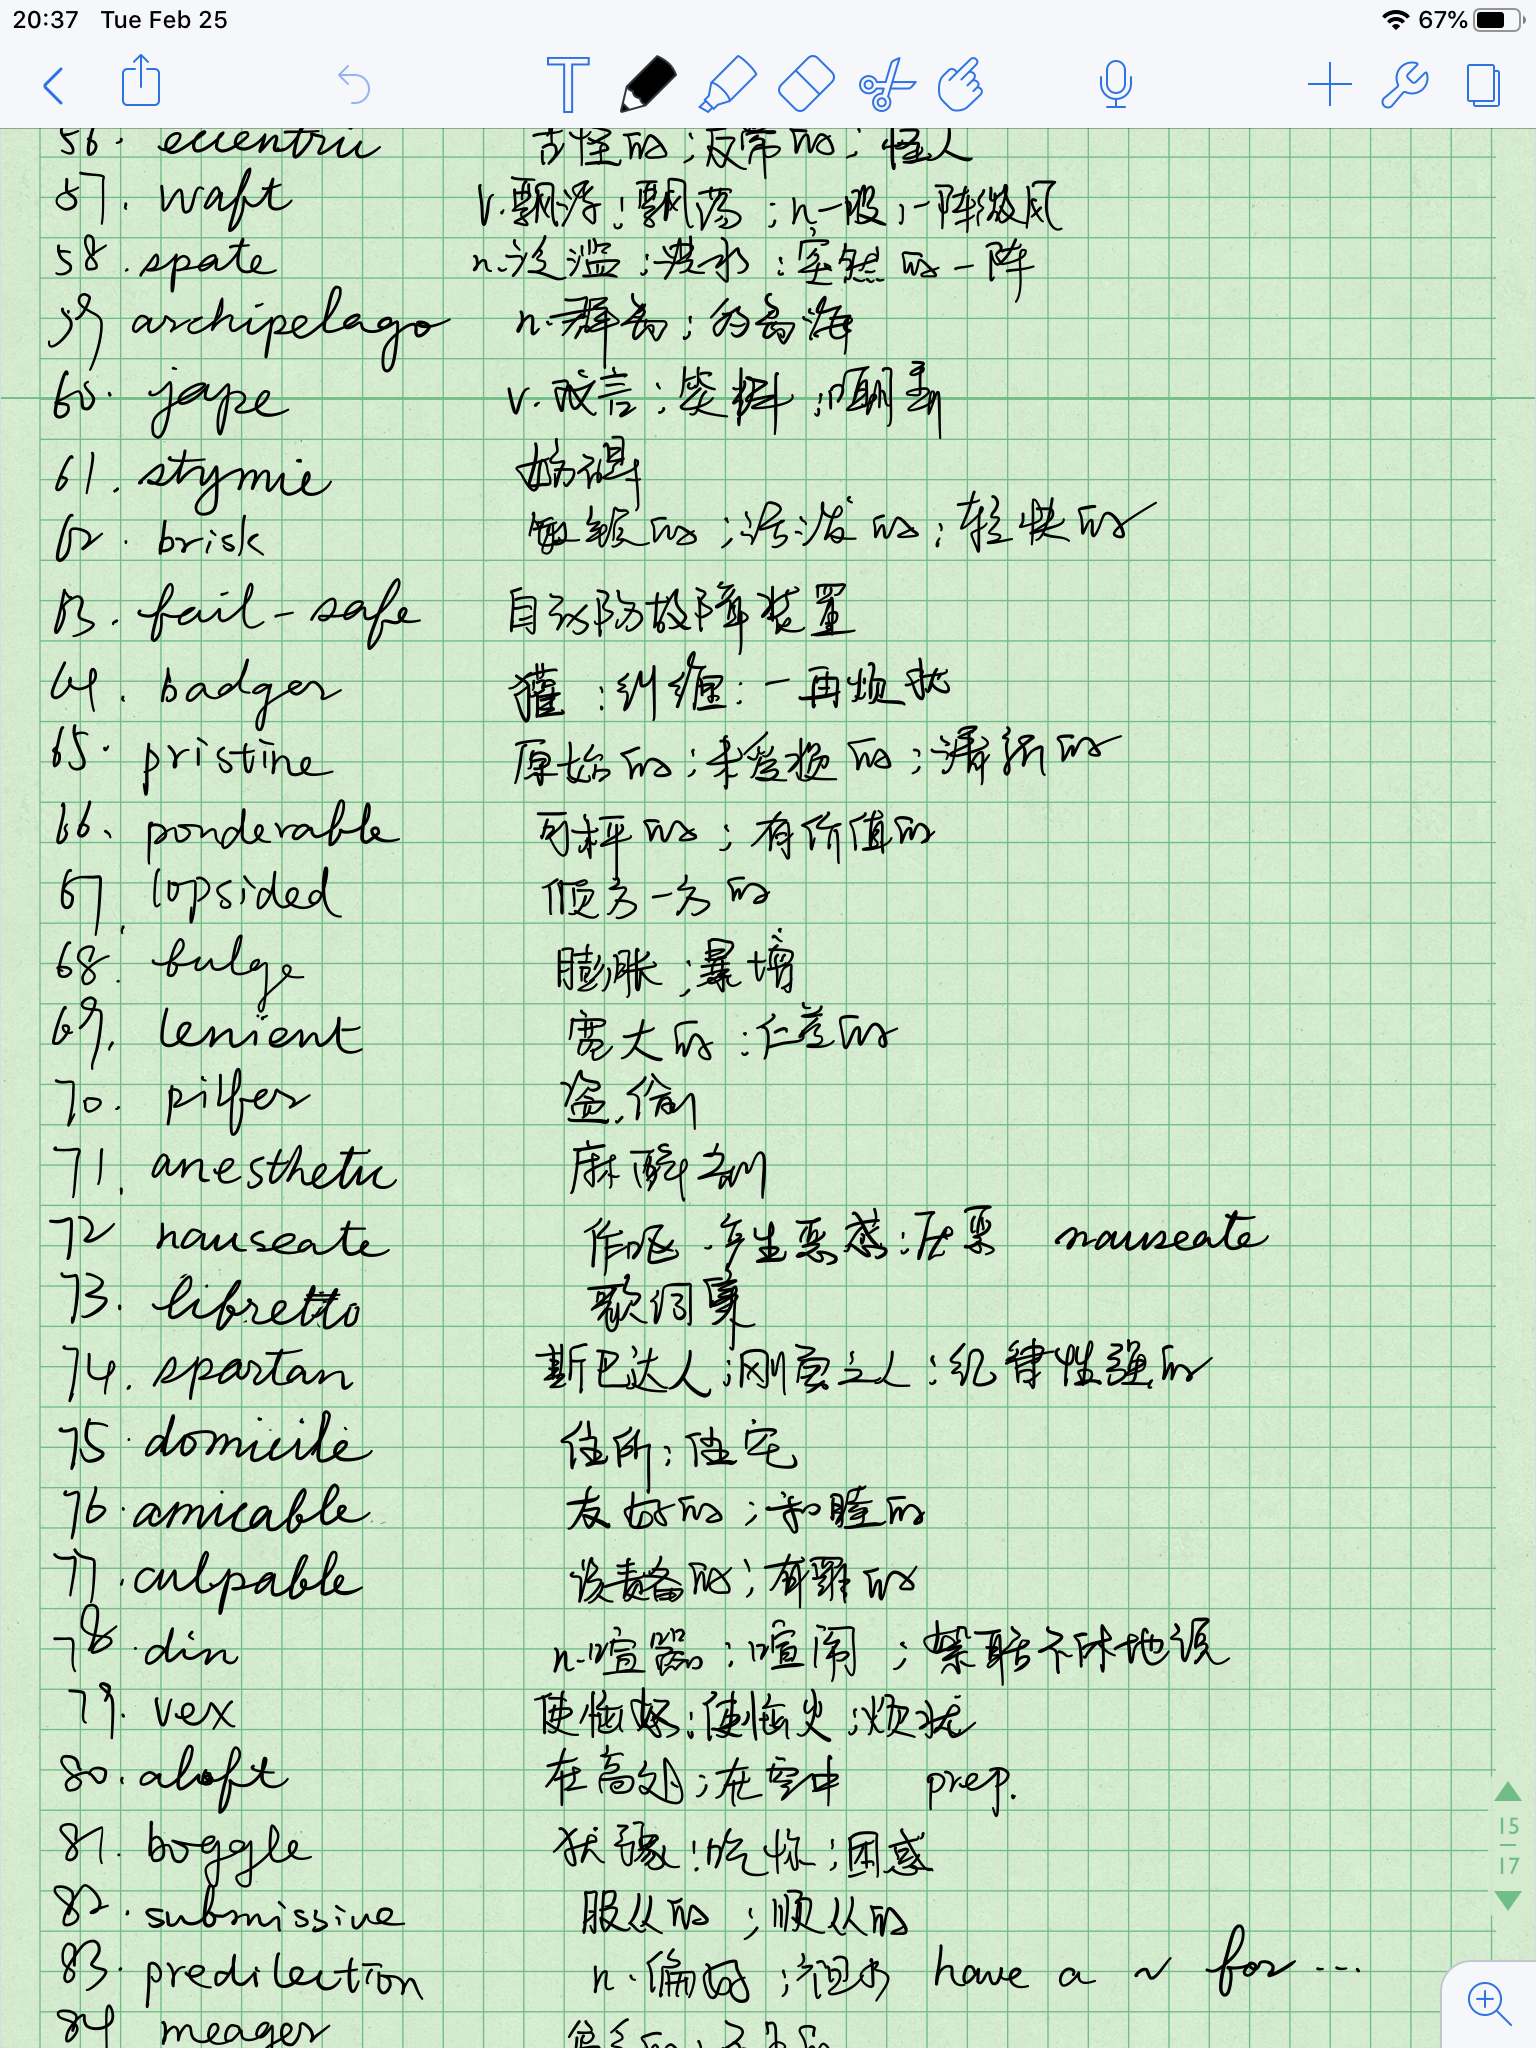 20:37 Tue Feb 25 67%
56. eccentric 古怪的;反常的;怪人
57. waft v.飘浮;飘荡;n一股;一阵微风
58. spate n.泛滥;洪水;突然的一阵
59 archipelago n.群岛;多岛海
60. jape v.戏言;笑料;嘲弄
61. stymie 妨碍
62. brisk 敏锐的;活泼的;轻快的
63. fail-safe 自动防故障装置
64. badger 獾;纠缠;一再烦扰
65. pristine 原始的;未受损的;清新的
66. ponderable 可秤的;有价值的
67. lopsided 倾向一方的
68. bulge 膨胀;暴增
69. lenient 宽大的;仁慈的
70. pilfer 盗,偷
71. anesthetic 麻醉剂
72 nauseate 作呕.产生恶感;厌恶 nauseate
73. libretto 歌词集
74. spartan 斯巴达人;刚勇之人;纪律性强的
75. domicile 住所;住宅
76. amicable 友好的;和睦的
77. culpable 该责备的;有罪的
78. din n.喧嚣;喧闹;絮聒不休地说
79. vex 使恼怒;使恼火;烦扰
80. aloft 在高处;在空中 prep.
81. boggle 犹豫;吃惊;困惑
82. submissive 服从的;顺从的
83. predilection n.偏好;袒护 have a ~ for ...
84 meager
15
17